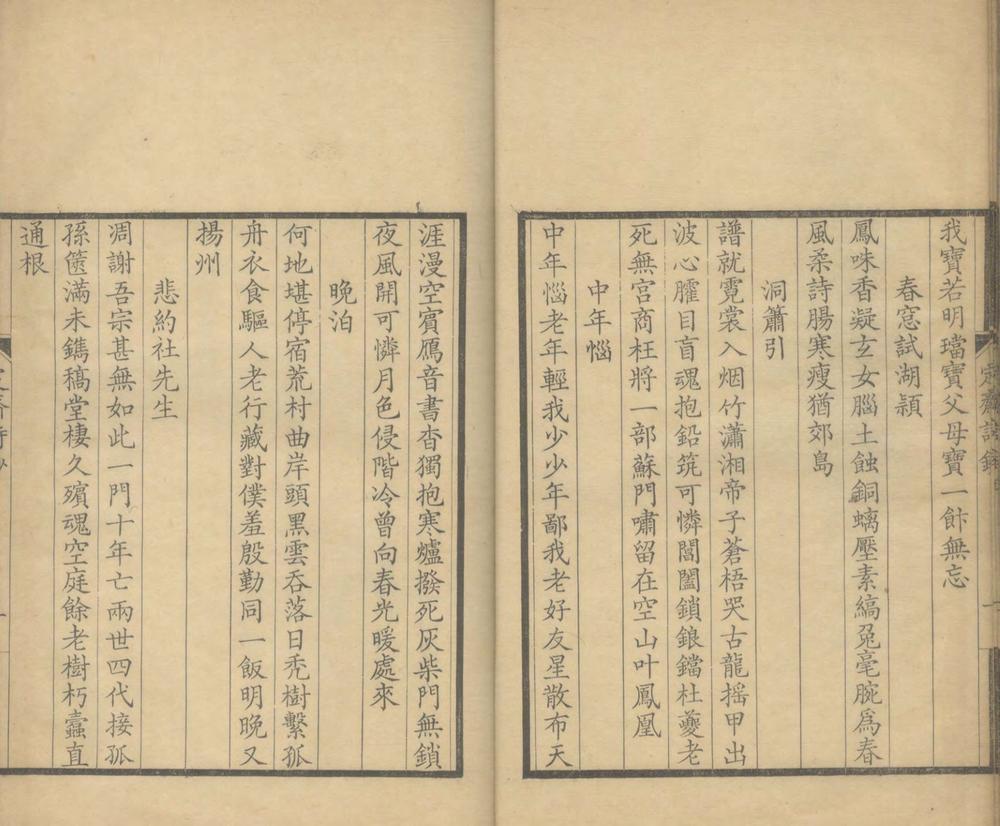 我寶若明璫寶父母寶一飰無忘
春窓試湖穎
鳳咮香凝玄女腦土蝕銅螭壓素縞兔毫腕爲春
風柔詩腸寒瘦猶郊島
洞簫引
譜就霓裳入烟竹瀟湘帝子蒼梧哭古龍搖甲出
波心臞目盲魂抱鉛筑可憐閶闔鎖鋃鐺杜夔老
死無宮商枉將一部蘇門嘯留在空山叶鳳凰
中年惱
中年惱老年輕我少少年鄙我老好友星散布天
涯漫空賓鴈音書杳獨抱寒爐撥死灰柴門無鎖
夜風開可憐月色侵階冷曾向春光暖處來
晚泊
何地堪停宿荒村曲岸頭黑雲吞落日禿樹繫孤
舟衣食驅人老行藏對僕羞殷勤同一飯明晚又
揚州
悲約社先生
凋謝吾宗甚無如此一門十年亡兩世四代接孤
孫篋滿未鐫稿堂棲久殯魂空庭餘老樹朽蠹直
通根